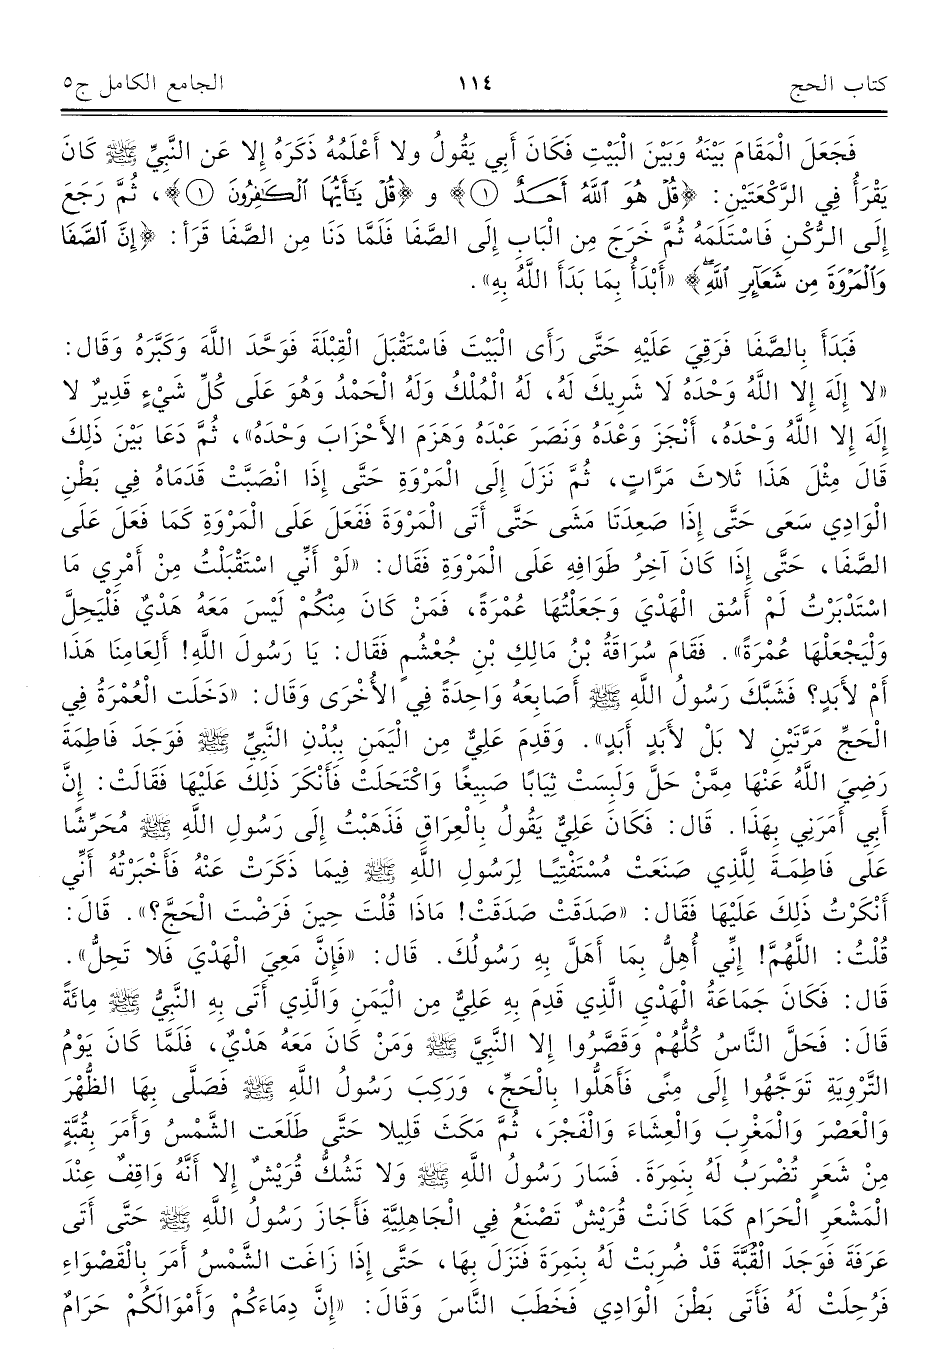 كتاب الحج ١١٤ الجامع الكامل ج٥
فَجَعَلَ الْمَقَامَ بَيْنَهُ وَبَيْنَ الْبَيْتِ فَكَانَ أَبِي يَقُولُ ولا أَعْلَمُهُ ذَكَرَهُ إِلا عَن النَّبِيِّ ﷺ كَانَ
يَقْرَأُ فِي الرَّكْعَتَيْنِ: ﴿قُلْ هُوَ ٱللَّهُ أَحَـدٌ ١﴾ و ﴿قُلْ يَـٰٓأَيُّهَا ٱلْكَـٰفِرُونَ ١﴾، ثُمَّ رَجَعَ
إِلَى الرُّكْنِ فَاسْتَلَمَهُ ثُمَّ خَرَجَ مِن الْبَابِ إِلَى الصَّفَا فَلَمَّا دَنَا مِن الصَّفا قَرَأ: ﴿إِنَّ ٱلصَّفَا
وَٱلْمَرْوَةَ مِن شَعَآئِرِ ٱللَّهِۖ﴾ «أَبْدَأُ بِمَا بَدَأَ اللَّهُ بِهِ».
فَبَدَأَ بِالصَّفَا فَرَقِيَ عَلَيْهِ حَتَّى رَأَى الْبَيْتَ فَاسْتَقْبَلَ الْقِبْلَةَ فَوَحَّدَ اللَّهَ وَكَبَّرَهُ وَقَال:
«لا إِلَهَ إِلا اللَّهُ وَحْدَهُ لَا شَرِيكَ لَهُ، لَهُ الْمُلْكُ وَلَهُ الْحَمْدُ وَهُوَ عَلَى كُلِّ شَيْءٍ قَدِيرٌ لا
إِلَهَ إِلا اللَّهُ وَحْدَهُ، أَنْجَزَ وَعْدَهُ وَنَصَرَ عَبْدَهُ وَهَزَمَ الأَحْزَابَ وَحْدَهُ»، ثُمَّ دَعَا بَيْنَ ذَلِكَ
قَالَ مِثْلَ هَذَا ثَلاثَ مَرَّاتٍ، ثُمَّ نَزَلَ إِلَى الْمَرْوَةِ حَتَّى إِذَا انْصَبَّتْ قَدَمَاهُ فِي بَطْنِ
الْوَادِي سَعَى حَتَّى إِذَا صَعِدَتَا مَشَى حَتَّى أَتَى الْمَرْوَةَ فَفَعَلَ عَلَى الْمَرْوَةِ كَمَا فَعَلَ عَلَى
الصَّفَا، حَتَّى إِذَا كَانَ آخِرُ طَوَافِهِ عَلَى الْمَرْوَةِ فَقَال: «لَوْ أَنِّي اسْتَقْبَلْتُ مِنْ أَمْرِي مَا
اسْتَدْبَرْتُ لَمْ أَسُق الْهَدْيَ وَجَعَلْتُهَا عُمْرَةً، فَمَنْ كَانَ مِنْكُمْ لَيْسَ مَعَهُ هَدْيٌ فَلْيَحِلَّ
وَلْيَجْعَلْهَا عُمْرَةً». فَقَامَ سُرَاقَةُ بْنُ مَالِكِ بْنِ جُعْشُمٍ فَقَال: يَا رَسُولَ اللَّهِ! أَلِعَامِنَا هَذَا
أَمْ لأَبَدٍ؟ فَشَبَّكَ رَسُولُ اللَّهِ ﷺ أَصَابِعَهُ وَاحِدَةً فِي الأُخْرَى وَقَال: «دَخَلَت الْعُمْرَةُ فِي
الْحَجِّ مَرَّتَيْنِ لا بَلْ لأَبَدٍ أَبَدٍ». وَقَدِمَ عَلِيٌّ مِن الْيَمَنِ بِبُدْنِ النَّبِيِّ ﷺ فَوَجَدَ فَاطِمَةَ
رَضِيَ اللَّهُ عَنْهَا مِمَّنْ حَلَّ وَلَبِسَتْ ثِيَابًا صَبِيغًا وَاكْتَحَلَتْ فَأَنْكَرَ ذَلِكَ عَلَيْهَا فَقَالَتْ: إِنَّ
أَبِي أَمَرَنِي بِهَذَا. قَال: فَكَانَ عَلِيٌّ يَقُولُ بِالْعِرَاقِ فَذَهَبْتُ إِلَى رَسُولِ اللَّهِ ﷺ مُحَرِّشًا
عَلَى فَاطِمَةَ لِلَّذِي صَنَعَتْ مُسْتَفْتِيًا لِرَسُولِ اللَّهِ ﷺ فِيمَا ذَكَرَتْ عَنْهُ فَأَخْبَرْتُهُ أَنِّي
أَنْكَرْتُ ذَلِكَ عَلَيْهَا فَقَال: «صَدَقَتْ صَدَقَتْ! مَاذَا قُلْتَ حِينَ فَرَضْتَ الْحَجَّ؟». قَال:
قُلْتُ: اللَّهُمَّ! إِنِّي أُهِلُّ بِمَا أَهَلَّ بِهِ رَسُولُكَ. قَال: «فَإِنَّ مَعِيَ الْهَدْيَ فَلا تَحِلُّ».
قَال: فَكَانَ جَمَاعَةُ الْهَدْيِ الَّذِي قَدِمَ بِهِ عَلِيٌّ مِن الْيَمَنِ وَالَّذِي أَتَى بِهِ النَّبِيُّ ﷺ مِائَةً
قَالَ: فَحَلَّ النَّاسُ كُلُّهُمْ وَقَصَّرُوا إِلا النَّبِيَّ ﷺ وَمَنْ كَانَ مَعَهُ هَدْيٌ، فَلَمَّا كَانَ يَوْمُ
التَّرْوِيَةِ تَوَجَّهُوا إِلَى مِنًى فَأَهَلُّوا بِالْحَجِّ، وَرَكِبَ رَسُولُ اللَّهِ ﷺ فَصَلَّى بِهَا الظُّهْرَ
وَالْعَصْرَ وَالْمَغْرِبَ وَالْعِشَاءَ وَالْفَجْرَ، ثُمَّ مَكَثَ قَلِيلا حَتَّى طَلَعَت الشَّمْسُ وَأَمَرَ بِقُبَّةٍ
مِنْ شَعَرٍ تُضْرَبُ لَهُ بِنَمِرَةَ. فَسَارَ رَسُولُ اللَّهِ ﷺ وَلا تَشُكُّ قُرَيْشٌ إِلا أَنَّهُ وَاقِفٌ عِنْدَ
الْمَشْعَرِ الْحَرَامِ كَمَا كَانَتْ قُرَيْشٌ تَصْنَعُ فِي الْجَاهِلِيَّةِ فَأَجَازَ رَسُولُ اللَّهِ ﷺ حَتَّى أَتَى
عَرَفَةَ فَوَجَدَ الْقُبَّةَ قَدْ ضُرِبَتْ لَهُ بِنَمِرَةَ فَنَزَلَ بِهَا، حَتَّى إِذَا زَاغَت الشَّمْسُ أَمَرَ بِالْقَصْوَاءِ
فَرُحِلَتْ لَهُ فَأَتَى بَطْنَ الْوَادِي فَخَطَبَ النَّاسَ وَقَالَ: «إِنَّ دِمَاءَكُمْ وَأَمْوَالَكُمْ حَرَامٌ